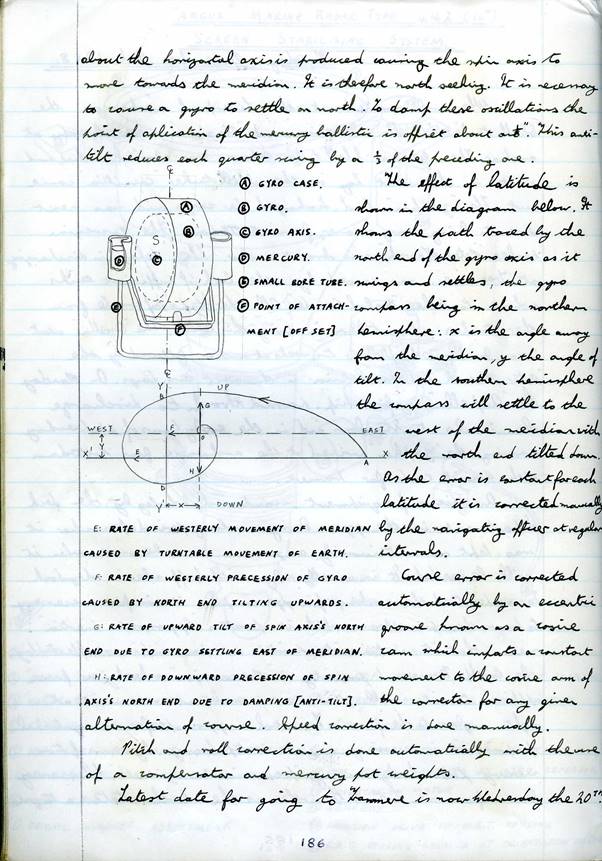 about the horizontal axis is produced causing the spin axis to
move towards the meridian. It is therefore north seeking. It is necessary
to cause a gyro to settle on north. To damp these oscillations the
point of aplication of the mercury ballistic is offset about This anti-
tilt reduces each quarter swing by a ⅓ of the preceding one.
The effect of latitude is
shown in the diagram below. It
shows the path traced by the
north end of the gyro axis as it
swings and settles, the gyro
compass being in the northern
hemisphere: x is the angle away
from the meridian, y the angle of
tilt. In the southern hemisphere
the compass will settle to the
west of the meridian with
the north end tilted down.
As the error is constant for each
latitude it is corrected manually
by the navigating officer at regular
intervals.
Course error is corrected
automatically by an eccentric
groove known as a cosine
cam which imparts a constant
movement to the cosine arm of
the corrector for any given
alternation of course. Speed correction is done manually.
Pitch and roll correction is done automatically with the use
of a compensator and mercury pot weights.
Latest date for going to Tranmere is now Wednesday the 20TH.
A GYRO CASE.
B GYRO.
C GYRO AXIS.
D MERCURY.
E SMALL BORE TUBE.
F POINT OF ATTACH-
MENT [OFF SET]
A
B
S
D
C
E
F
Y
B
UP
G
WEST
F
O
EAST
Y
X'
E
A
X
H
D
Y'
X
DOWN
E: RATE OF WESTERLY MOVEMENT OF MERIDIAN
CAUSED BY TURNTABLE MOVEMENT OF EARTH.
F: RATE OF WESTERLY PRECESSION OF GYRO
CAUSED BY NORTH END TILTING UPWARDS.
G: RATE OF UPWARD TILT OF SPIN AXIS'S NORTH
END DUE TO GYRO SETTLING EAST OF MERIDIAN.
H: RATE OF DOWNWARD PRECESSION OF SPIN
AXIS'S NORTH END DUE TO DAMPING [ANTI-TILT].
186